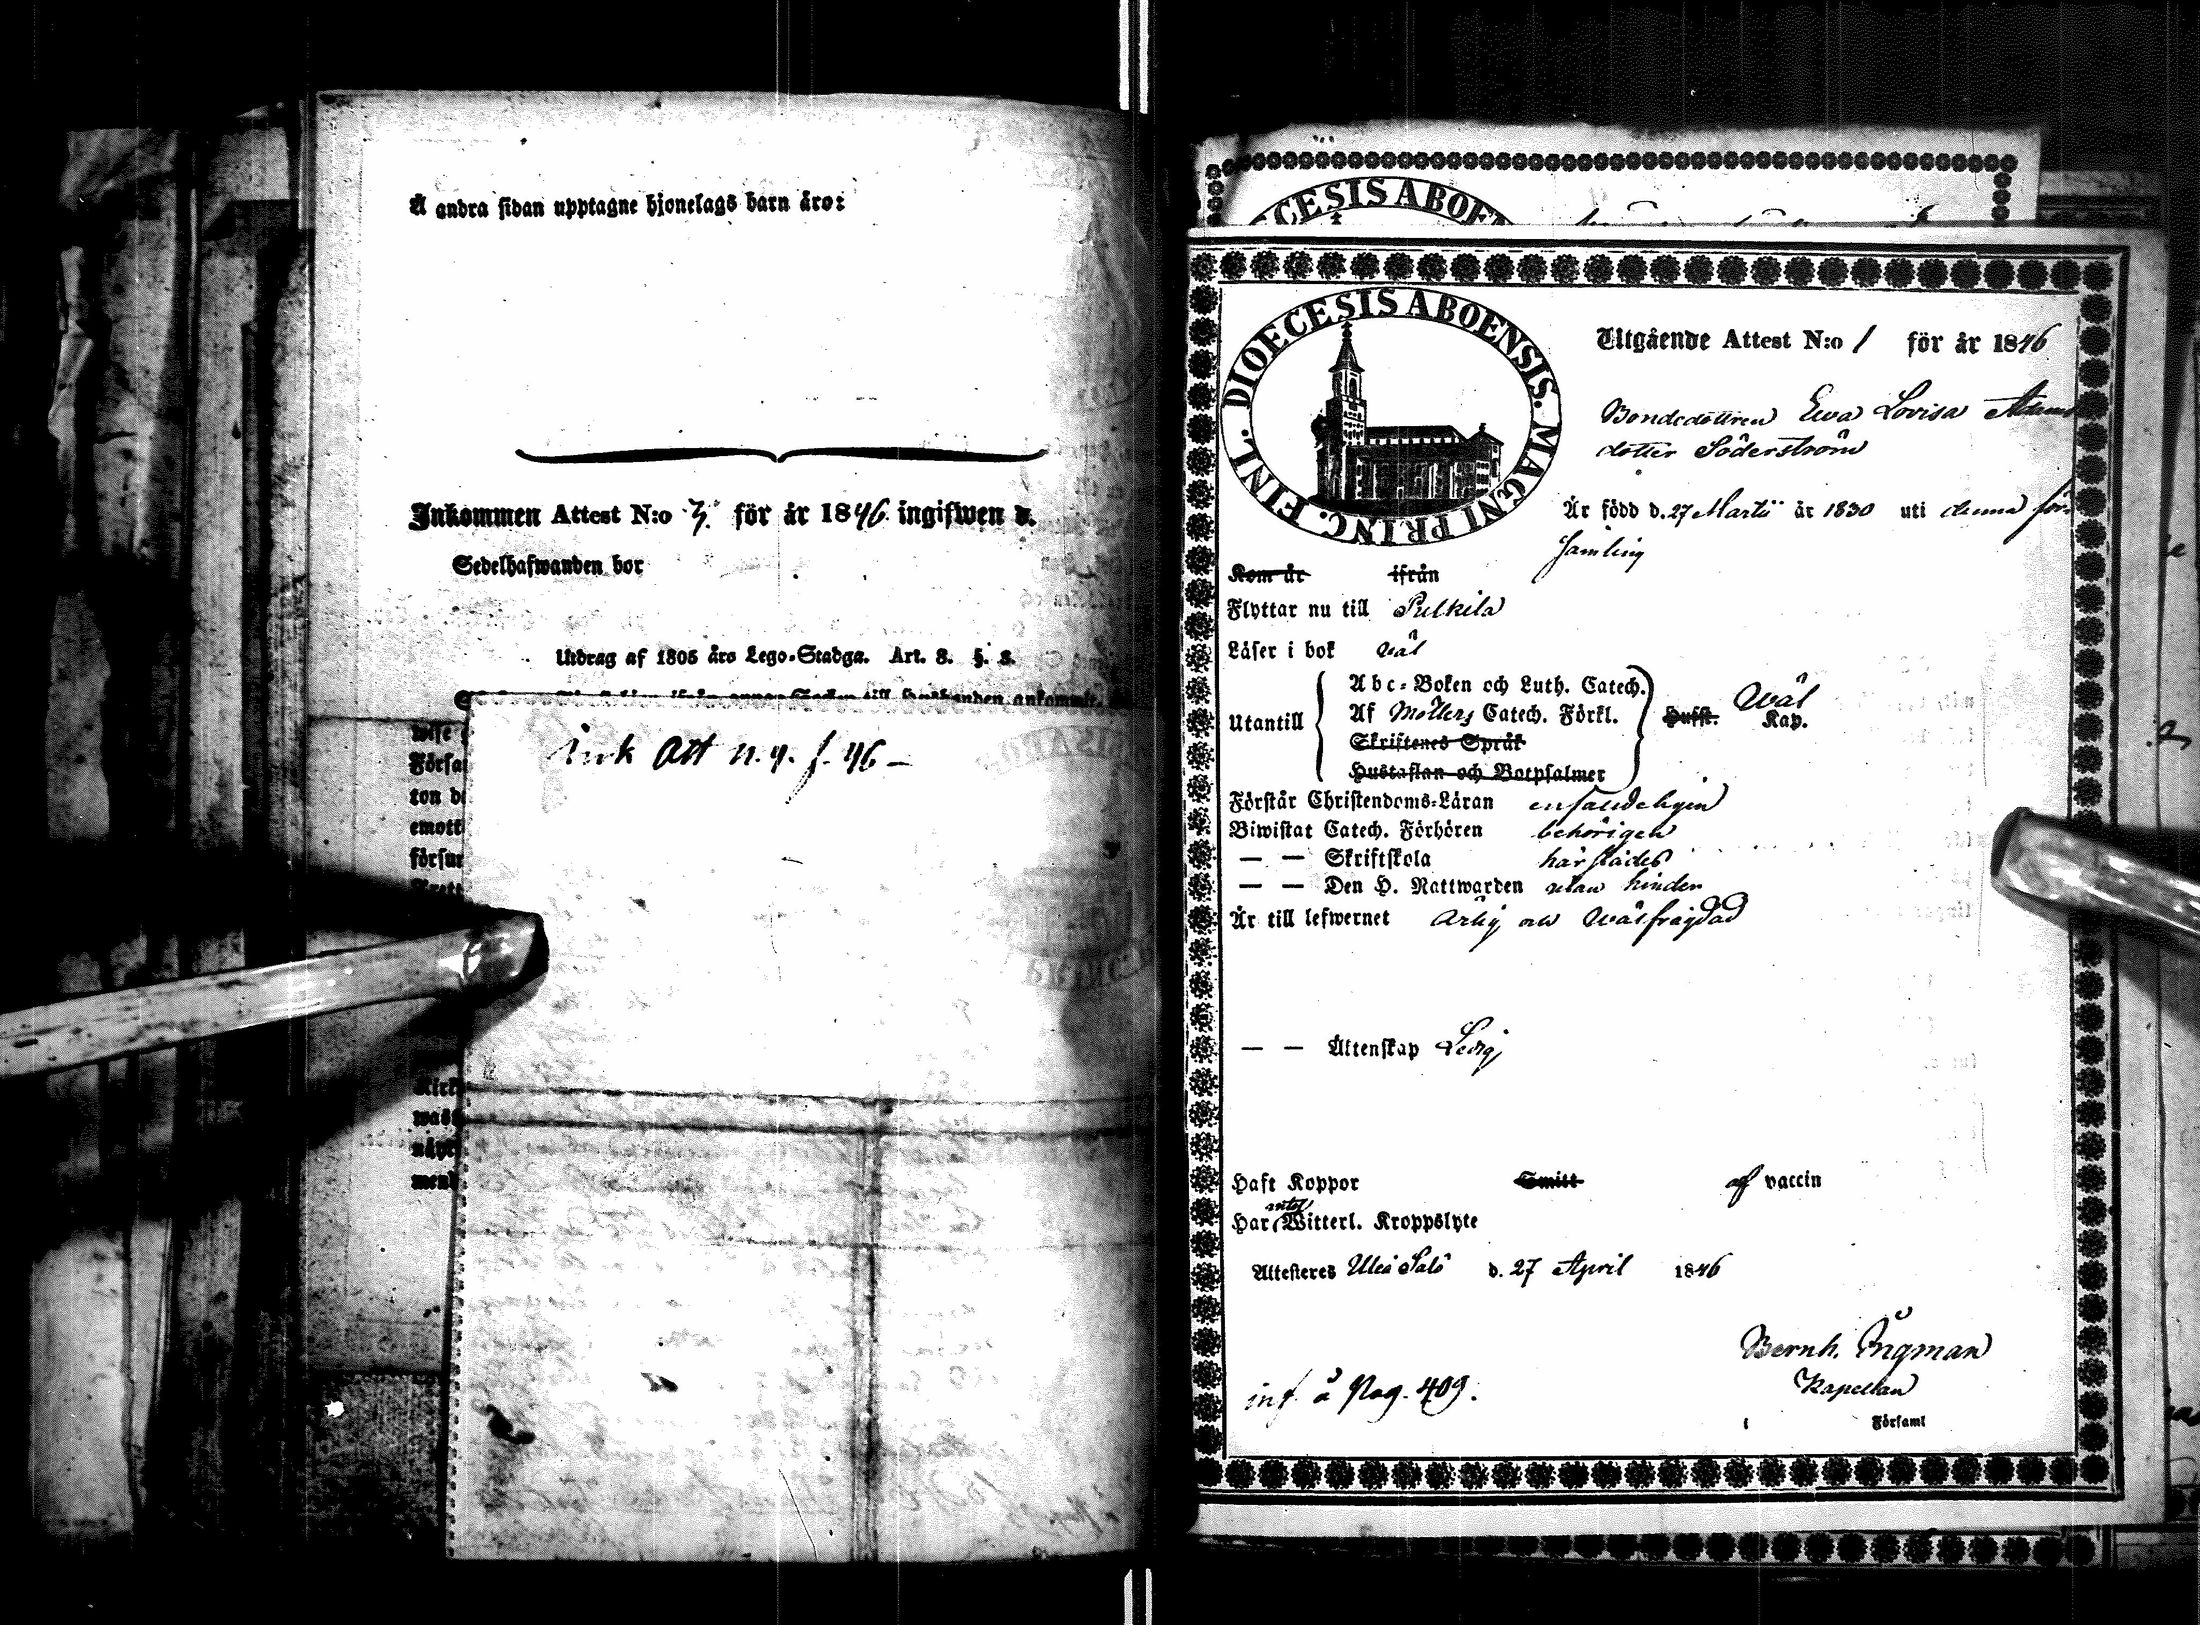 Å andra sidan upptagne hjonelags barn äro:
Inkommen Attest N:o 3. för år 1846 ingifwen d.
Sedelhafwanden bor
Utdrag af 1805 års Lego-Stadga. Art. 8. §. 8.
till husbonden ankommit,
wise
Försa
ton d
emott
försu
wad
mend
Ink Att n. 4. f. 46 –
DIOECESIS ABOEN
DIOECESIS ABOENSIS. MAGNI PRINC. FINL.
Utgående Attest N:o 1 för år 1846
Bondedottren Ewa Lovisa Adams
dotter Söderström
Är född d. 27 Martii år 1830 uti denna för-
samling
Kom år ifrån
Flyttar nu till Pulkila
Läser i bok wäl
Utantill
Abc-Boken och Luth. Catech.
Af Möllers Catech. Förkl.
Skriftenes Språk
Hustaflan och Botpsalmer
Hufst. Wäl Kap.
Förstår Christendoms-Läran enfaldeligen
Biwistat Catech. Förhören behörigen
— — Skriftskola härstädes
— — Den H. Nattwarden utan hinder
Är till lefwernet ärlig och wälfrägdad
— — Äktenskap Ledig
Haft Koppor Smitt af vaccin
Har intet Witterl. Kroppslyte
Attesteres Uleå Salo d. 27 April 1846
Bernh. Ingman
Kapellan
inf. å Pag. 409.
i Församl